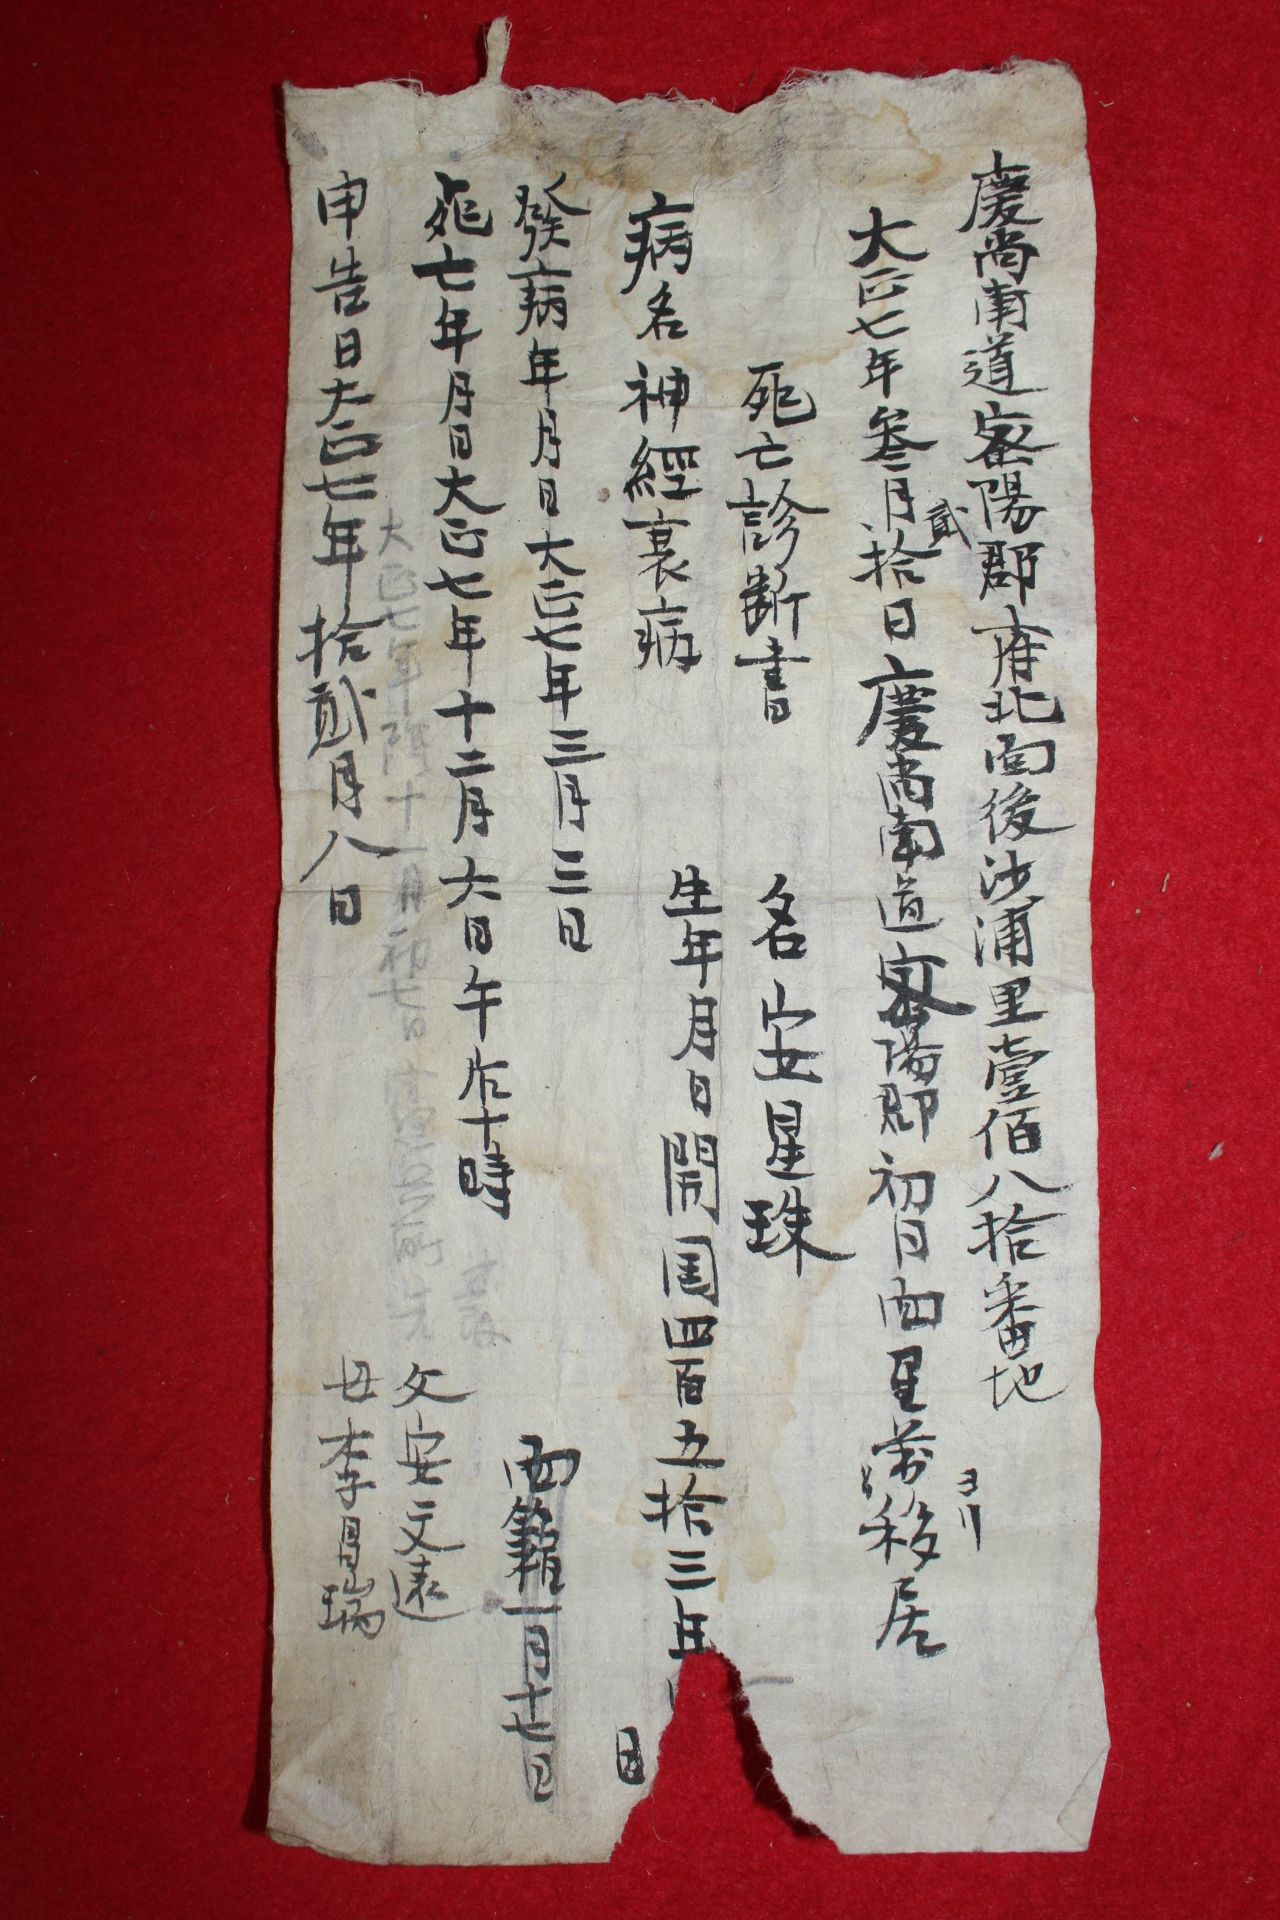 慶尚南道密陽郡府北面後沙浦里壹佰八拾番地
ヨリ
大正七年叁月拾日慶尚南道密陽郡初同面里移居
貳
死亡診断書
名安星珠
病名神經衰病
生年月日開国四百五拾三年
日
發病年月日大正七年三月三日
西籍一月十七日
死亡年月日大正七年十二月六日午后十時
父安文遠
大正七年陰十一月初七日
申告日大正七年拾貳月八日
母李月瑞